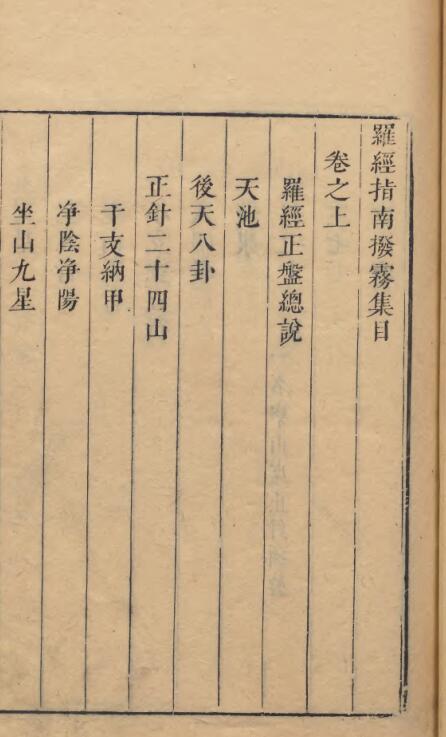 羅經指南撥霧集目
卷之上
羅經正盤總說
天池
後天八卦
正針二十四山
干支納甲
淨陰淨陽
坐山九星